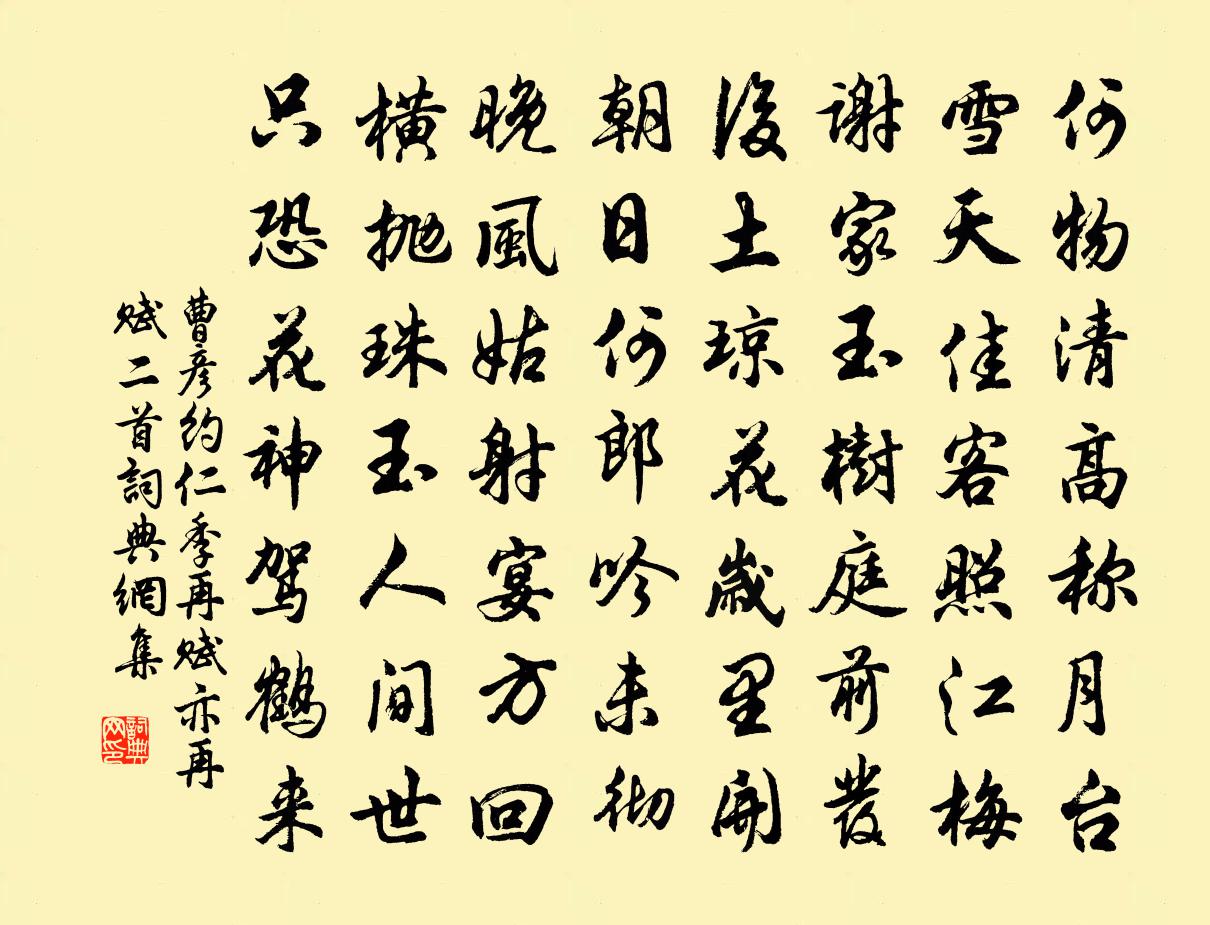 何物清高称月台
雪天佳客照江梅
谢家玉樹庭前發
後土琼花歲里開
朝日何郎吟未彻
晚風姑射宴方回
横抛珠玉人间世
只恐花神驾鶴来
曹彦约仁季再赋亦再
赋二首詞典網集
詞典网印